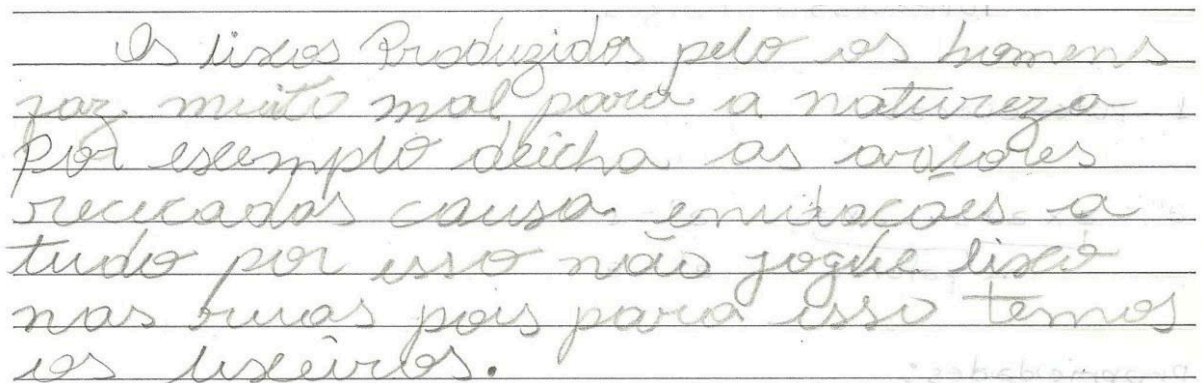 Os lixos Produzidos pelo os homens
faz muito mal para a natureza
por exemplo deicha as arvores
rececadas causa enudações a
tudo por isso não jogue lixo
nas ruas pois para isso temos
os lixeiros.